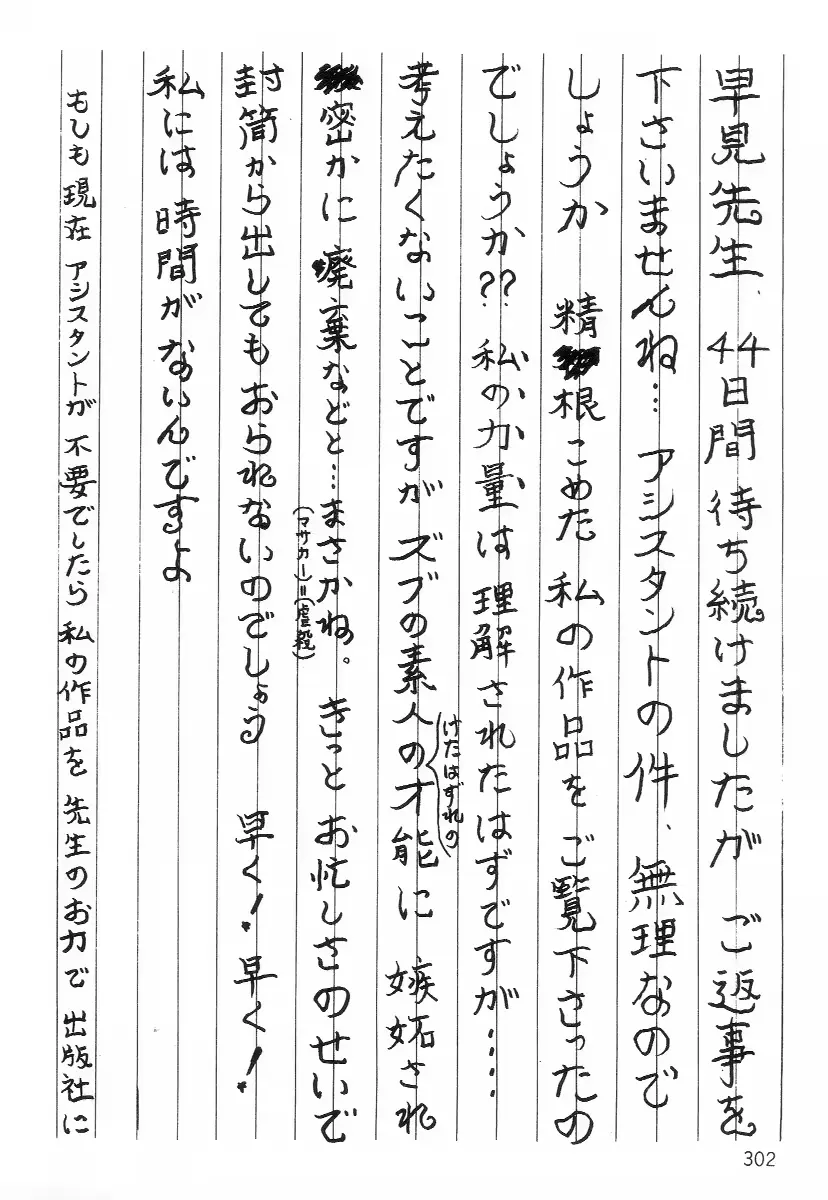 早見先生、44日間待ち続けましたが ご返事を
下さいませんね… アシスタントの件、無理なので
しょうか 精根こめた 私の作品を ご覧下さったの
でしょうか?? 私の力量は 理解されたはずですが‥‥
考えたくないことですが ズブの素人の才能に 嫉妬され
(けたはずれの)
密かに 廃棄などと… まさかね。 きっと お忙しさのせいで
(マサカー)=(虐殺)
封筒から出してもおられないのでしょう 早く! 早く!
私には時間がないんですよ
もしも現在 アシスタントが 不要でしたら 私の作品を 先生のお力で 出版社に
302